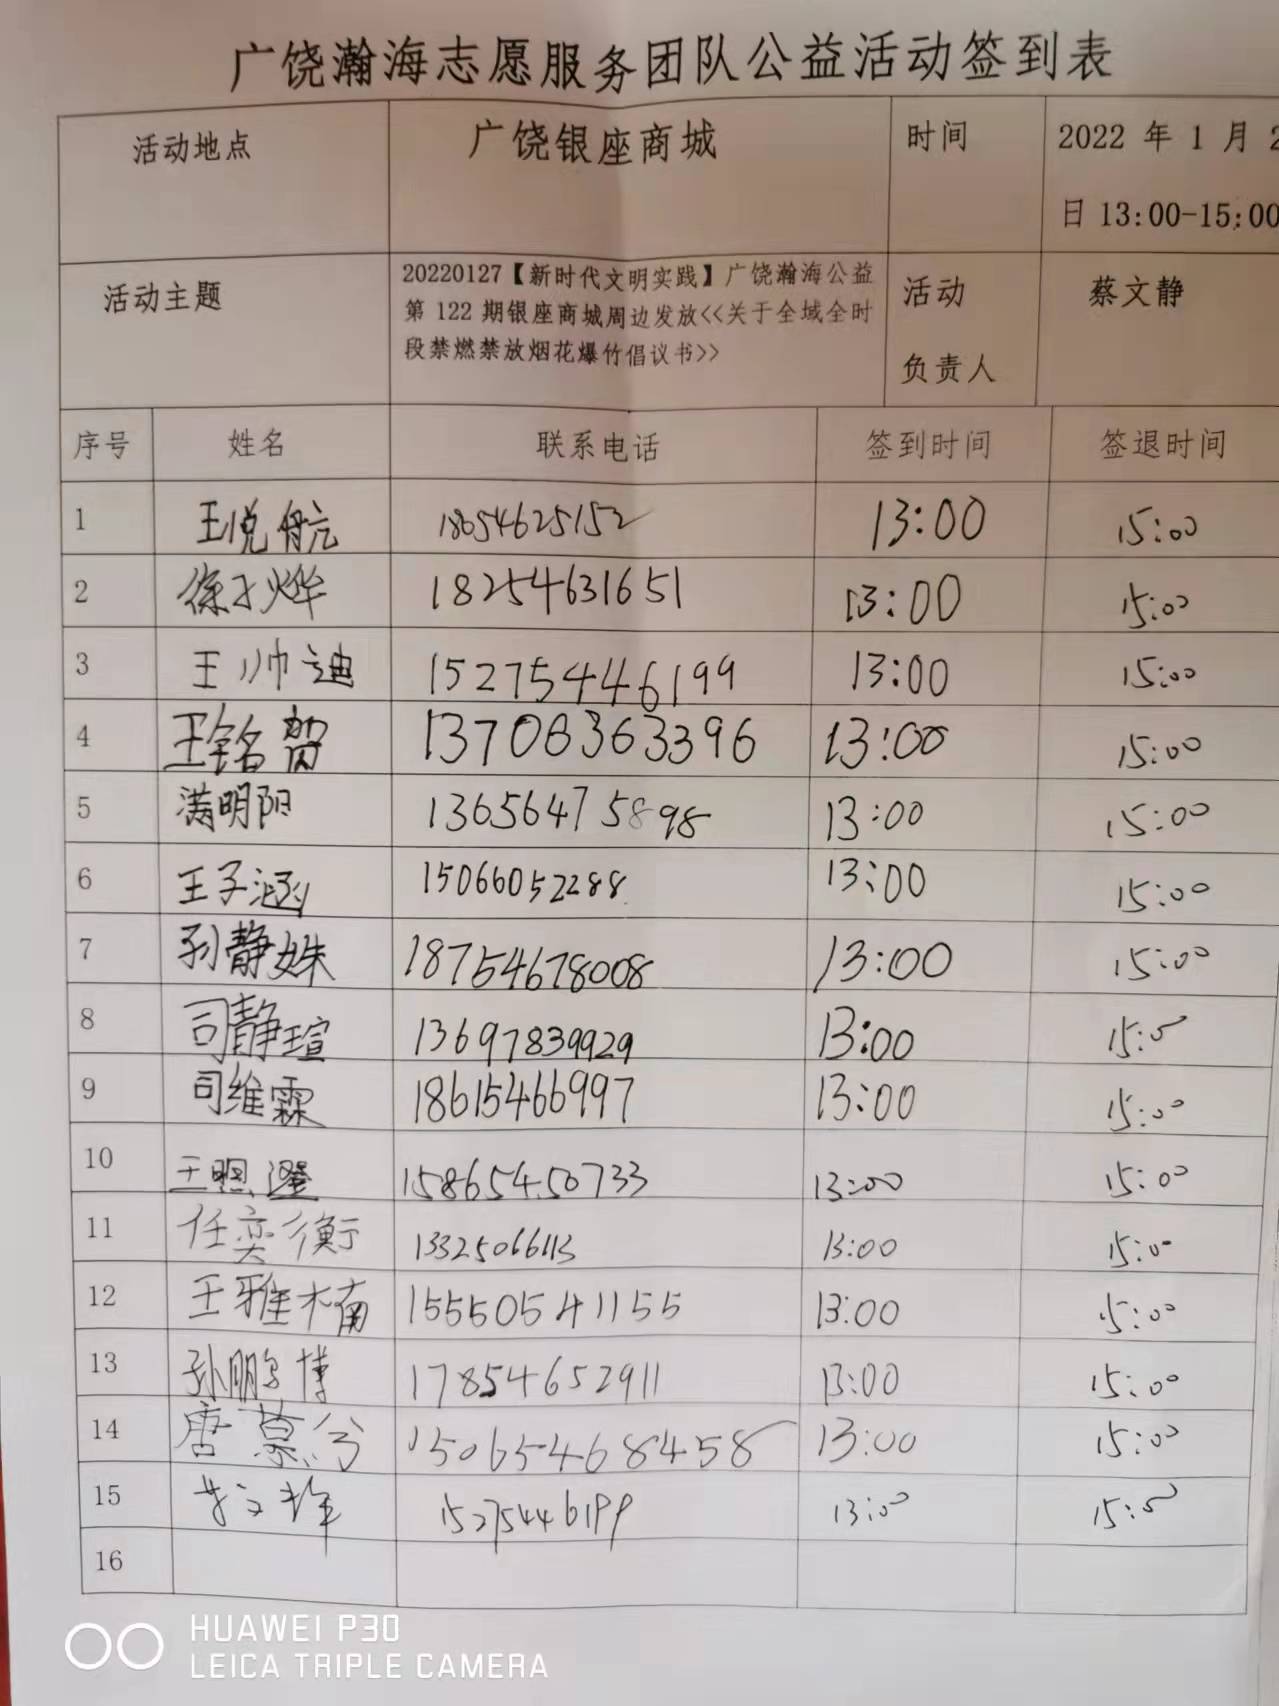 广饶瀚海志愿服务团队公益活动签到表
活动地点 广饶银座商城 时间 2022 年 1 月 2
日 13:00-15:00
活动主题 20220127【新时代文明实践】广饶瀚海公益 活动 蔡文静
第 122 期银座商城周边发放<<关于全域全时
段禁燃禁放烟花爆竹倡议书>> 负责人
序号 姓名 联系电话 签到时间 签退时间
1 王悦航 18054625152 13:00 15:00
2 徐子烨 18254631651 13:00 15:00
3 王帅迪 15275446199 13:00 15:00
4 王铭贺 13706363396 13:00 15:00
5 满明阳 13656475898 13:00 15:00
6 王子涵 15066052288 13:00 15:00
7 孙静姝 18754678008 13:00 15:00
8 司静瑄 13697839929 13:00 15:00
9 司维霖 18615466997 13:00 15:00
10 王 15865450733 13:00 15:00
11 任奕衡 13325066113 13:00 15:00
12 王雅楠 15550541155 13:00 15:00
13 孙鹏博 17854652911 13:00 15:00
14 唐慕兮 15065468458 13:00 15:00
15 15275446199 13:00 15:00
16
HUAWEI P30
LEICA TRIPLE CAMERA